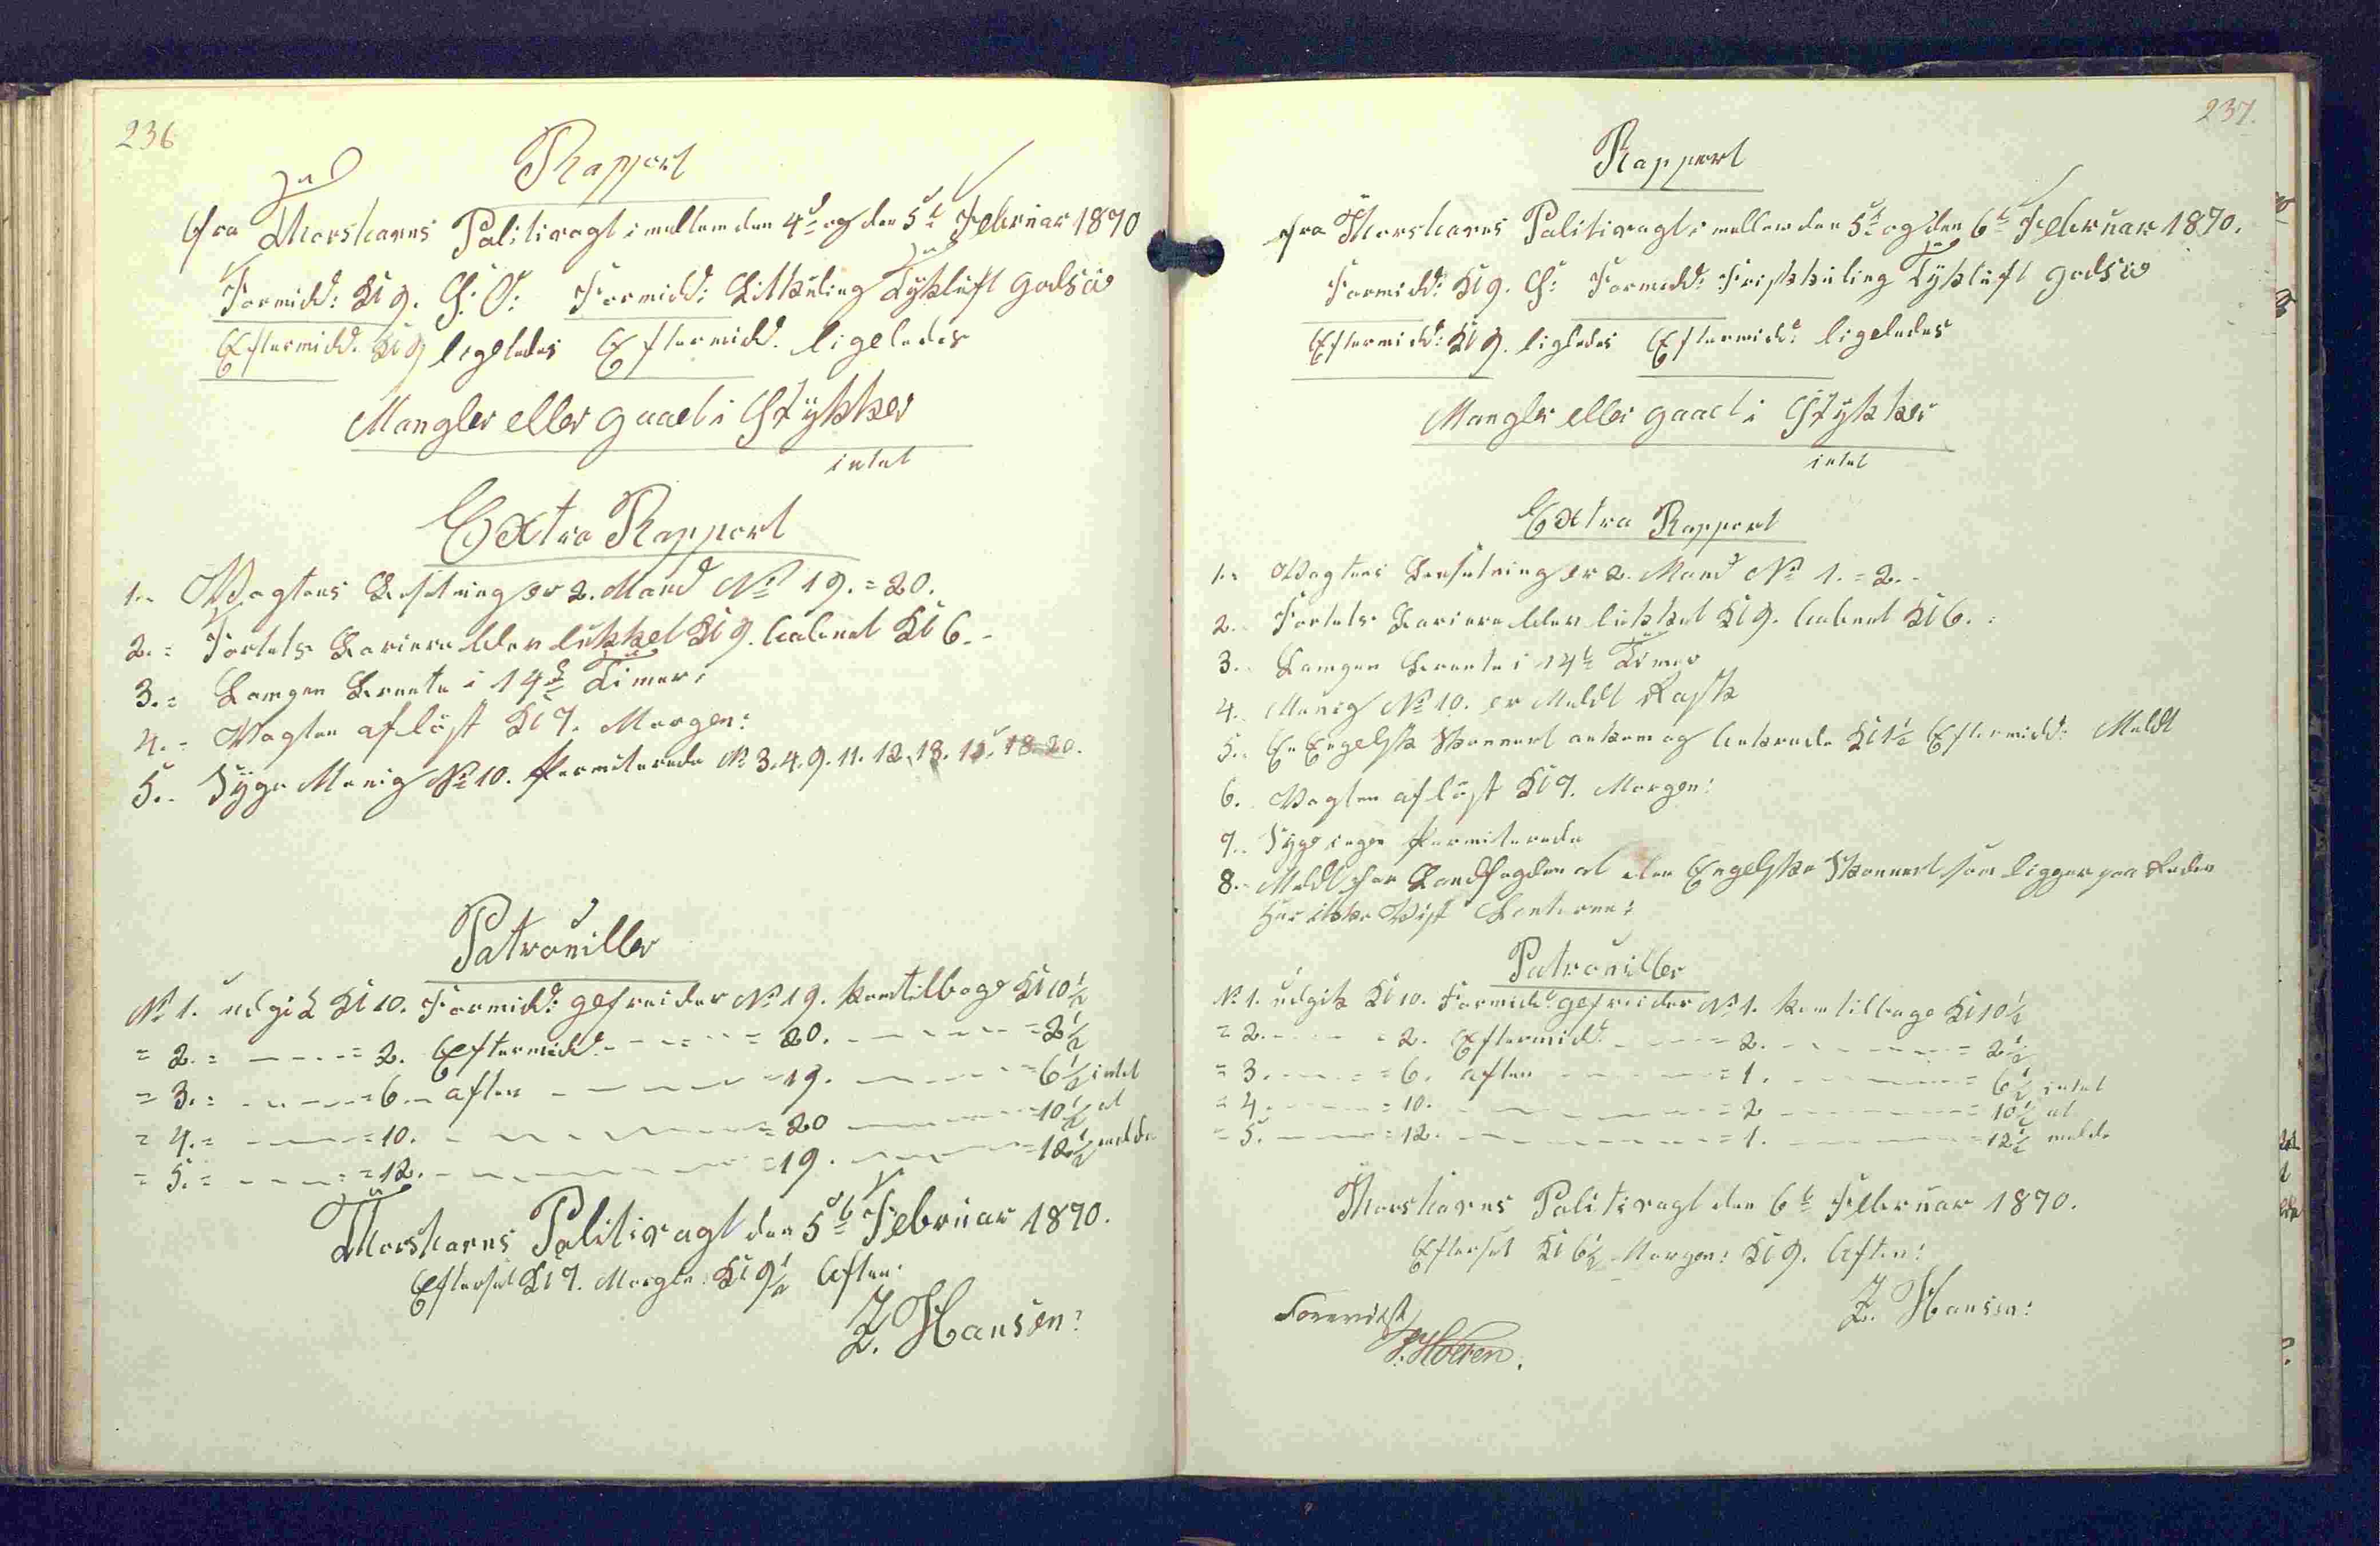 236
Rapport
fra Thorshavns Politivagt imellem den 4d og den 5t Februar 1870
Formidd: Kl 9. S: O: Formidd: Litkuling Tykluft godsø
Eftermidd. Kl 9 ligeledes Eftermidd. ligeledes
Mangler eller gaaet i Stykker
intet
Extra Rapport
1.. Vagtens Besetning er 2. Mand No 19. = 20.
2. = Fortets Bariere blev lukket Kl 9. aabnet Kl 6. -
3. = Lampen brente i 14 Timer:
4. = Vagten afløst Kl 7. Morgen:
5. - Syge Menig No 10. Permiterede No 3. 4. 9. 11. 12. 13. 15. 18. 20.
Patrouiller
No 1. udgik Kl 10. Formidd: gefreider No 19. kom tilbage Kl 10 1/2
= 2. = - - - = 2. Eftermidd. - - - = 20. - - - = 2 1/2
= 3. = - - - = 6. - aften - - - = 19. - - - = 6 1/2 intet
= 4. = - - - = 10. - - - = 20 - - - = 10 1/2 at
= 5. = - - - = 12. - - - = 19. - - - = 12 1/2 melde
Thorshavns Politivagt den 5t Februar 1870.
Efterset Kl 7. Morgen: Kl 9 1/2 Aften:
Z. Hansen:
237.
Rapport
fra Thorshavns Politivagt imellem den 5t og den 6t Februar 1870.
Formidd: Kl 9. S: Formidd: Friskkuling Tykluft godsø
Eftermidd: Kl 9. ligledes Eftermidd: ligeledes
Mangler eller gaaet i Stykker
intet
Extra Rapport
1. = Vagtens Besetning er 2. Mand No 1. = 2. -
2. - Fortets Bariere blev lukket Kl 9. aabnet Kl 6. :
3. - Lampen brente i 14 Timer
4. - Menig No 10. er Meldt Rask
5. - En Engelsk Skonnert ankom og Ankrede Kl 1 1/2 Eftermidd: Meldt
6. Vagten afløst Kl 7. Morgen:
7. - Syge ingen Permiterede
8. - Meldt for Landfogden at den Engelske Skonnert som ligger paa Reden
har ikke Vist Lanterne:
Patrouiller
No 1. udgik Kl 10. Formidd: gefreider No 1. kom tilbage Kl 10 1/2
= 2. - - - = 2. Eftermidd: - - - = 2. - - - = 2 1/2
= 3. - - - = 6. aften - - - = 1. - - - = 6 1/2 intet
= 4. - - - = 10. - - - = 2 - - - = 10 1/2 at
= 5. - - - = 12. - - - = 1. - - - = 12 1/2 melde
Thorshavns Politivagt den 6t Februar 1870.
Efterset Kl 6 1/2 Morgen: Kl 9. Aften:
Z. Hansen:
Foreviist